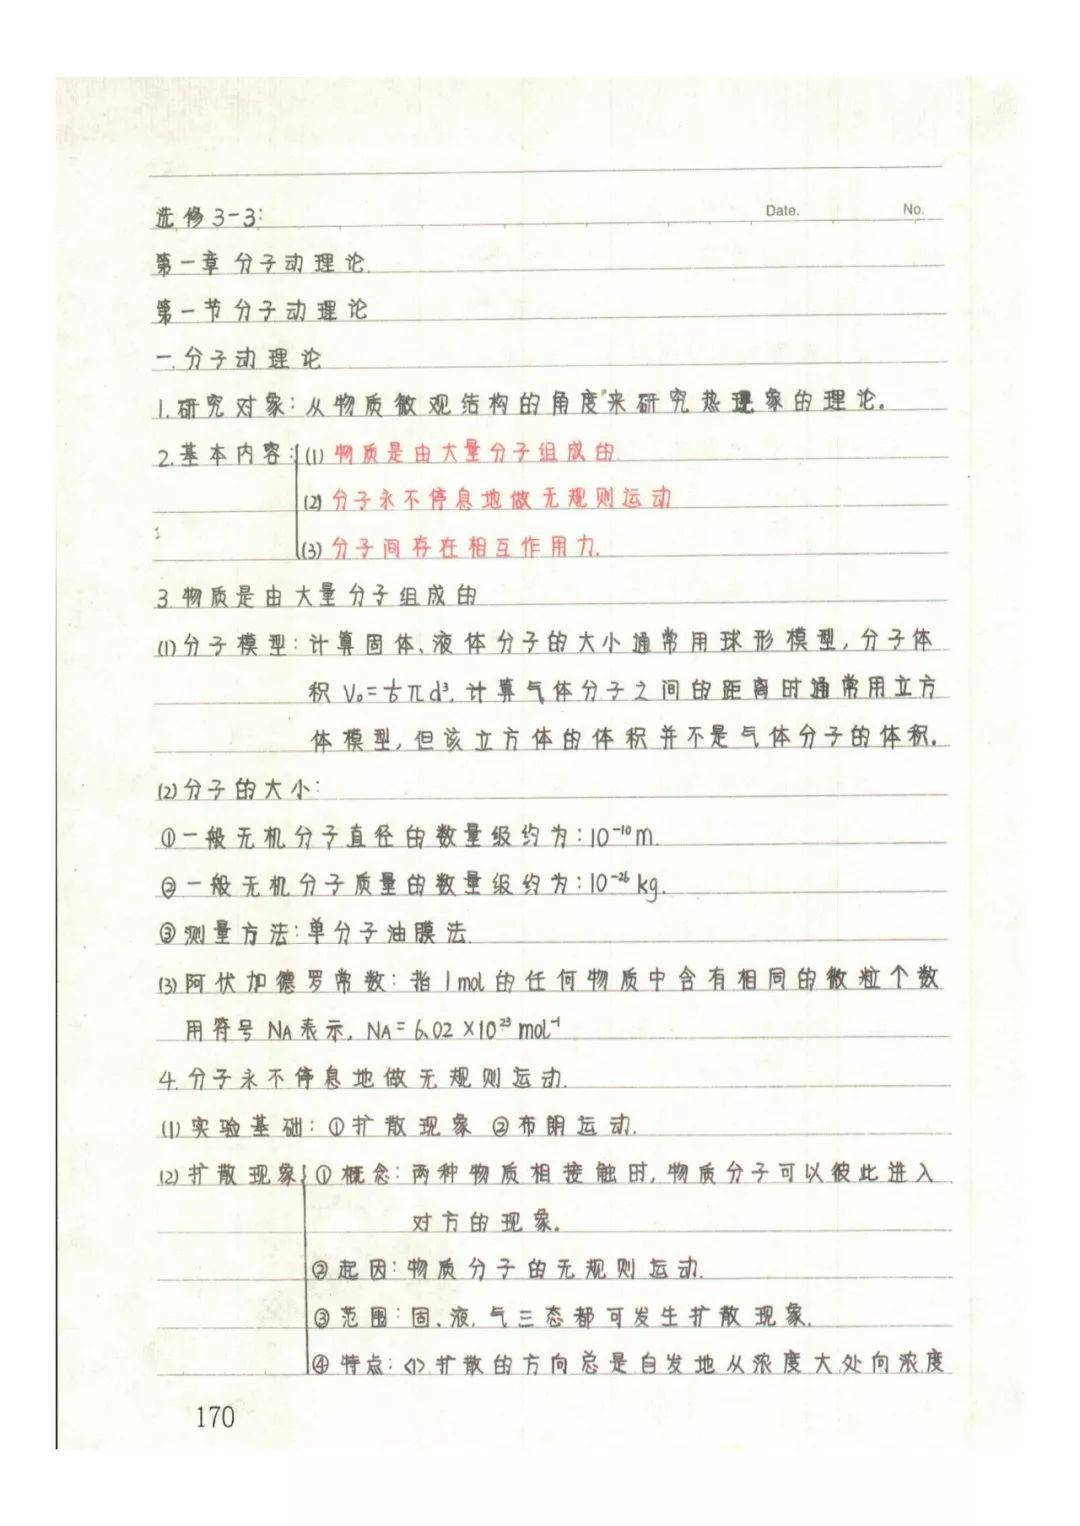 选修3-3:
Date. No.
第一章 分子动理论.
第一节 分子动理论
一.分子动理论
1.研究对象:从物质微观结构的角度来研究热现象的理论。
2.基本内容:(1) 物质是由大量分子组成的.
(2) 分子永不停息地做无规则运动
(3) 分子间存在相互作用力.
3.物质是由大量分子组成的
(1)分子模型:计算固体、液体分子的大小通常用球形模型,分子体
积 V₀=1/6πd³,计算气体分子之间的距离时通常用立方
体模型,但该立方体的体积并不是气体分子的体积。
(2)分子的大小:
①一般无机分子直径的数量级约为:10⁻¹⁰m.
②一般无机分子质量的数量级约为:10⁻²⁶kg.
③测量方法:单分子油膜法.
(3)阿伏加德罗常数:指1mol的任何物质中含有相同的微粒个数
用符号NA表示, NA=6.02×10²³mol⁻¹
4.分子永不停息地做无规则运动.
(1)实验基础:①扩散现象 ②布朗运动.
(2)扩散现象 ①概念:两种物质相接触时,物质分子可以彼此进入
对方的现象。
②起因:物质分子的无规则运动.
③范围:固、液、气三态都可发生扩散现象.
④特点:<1>.扩散的方向总是自发地从浓度大处向浓度
170